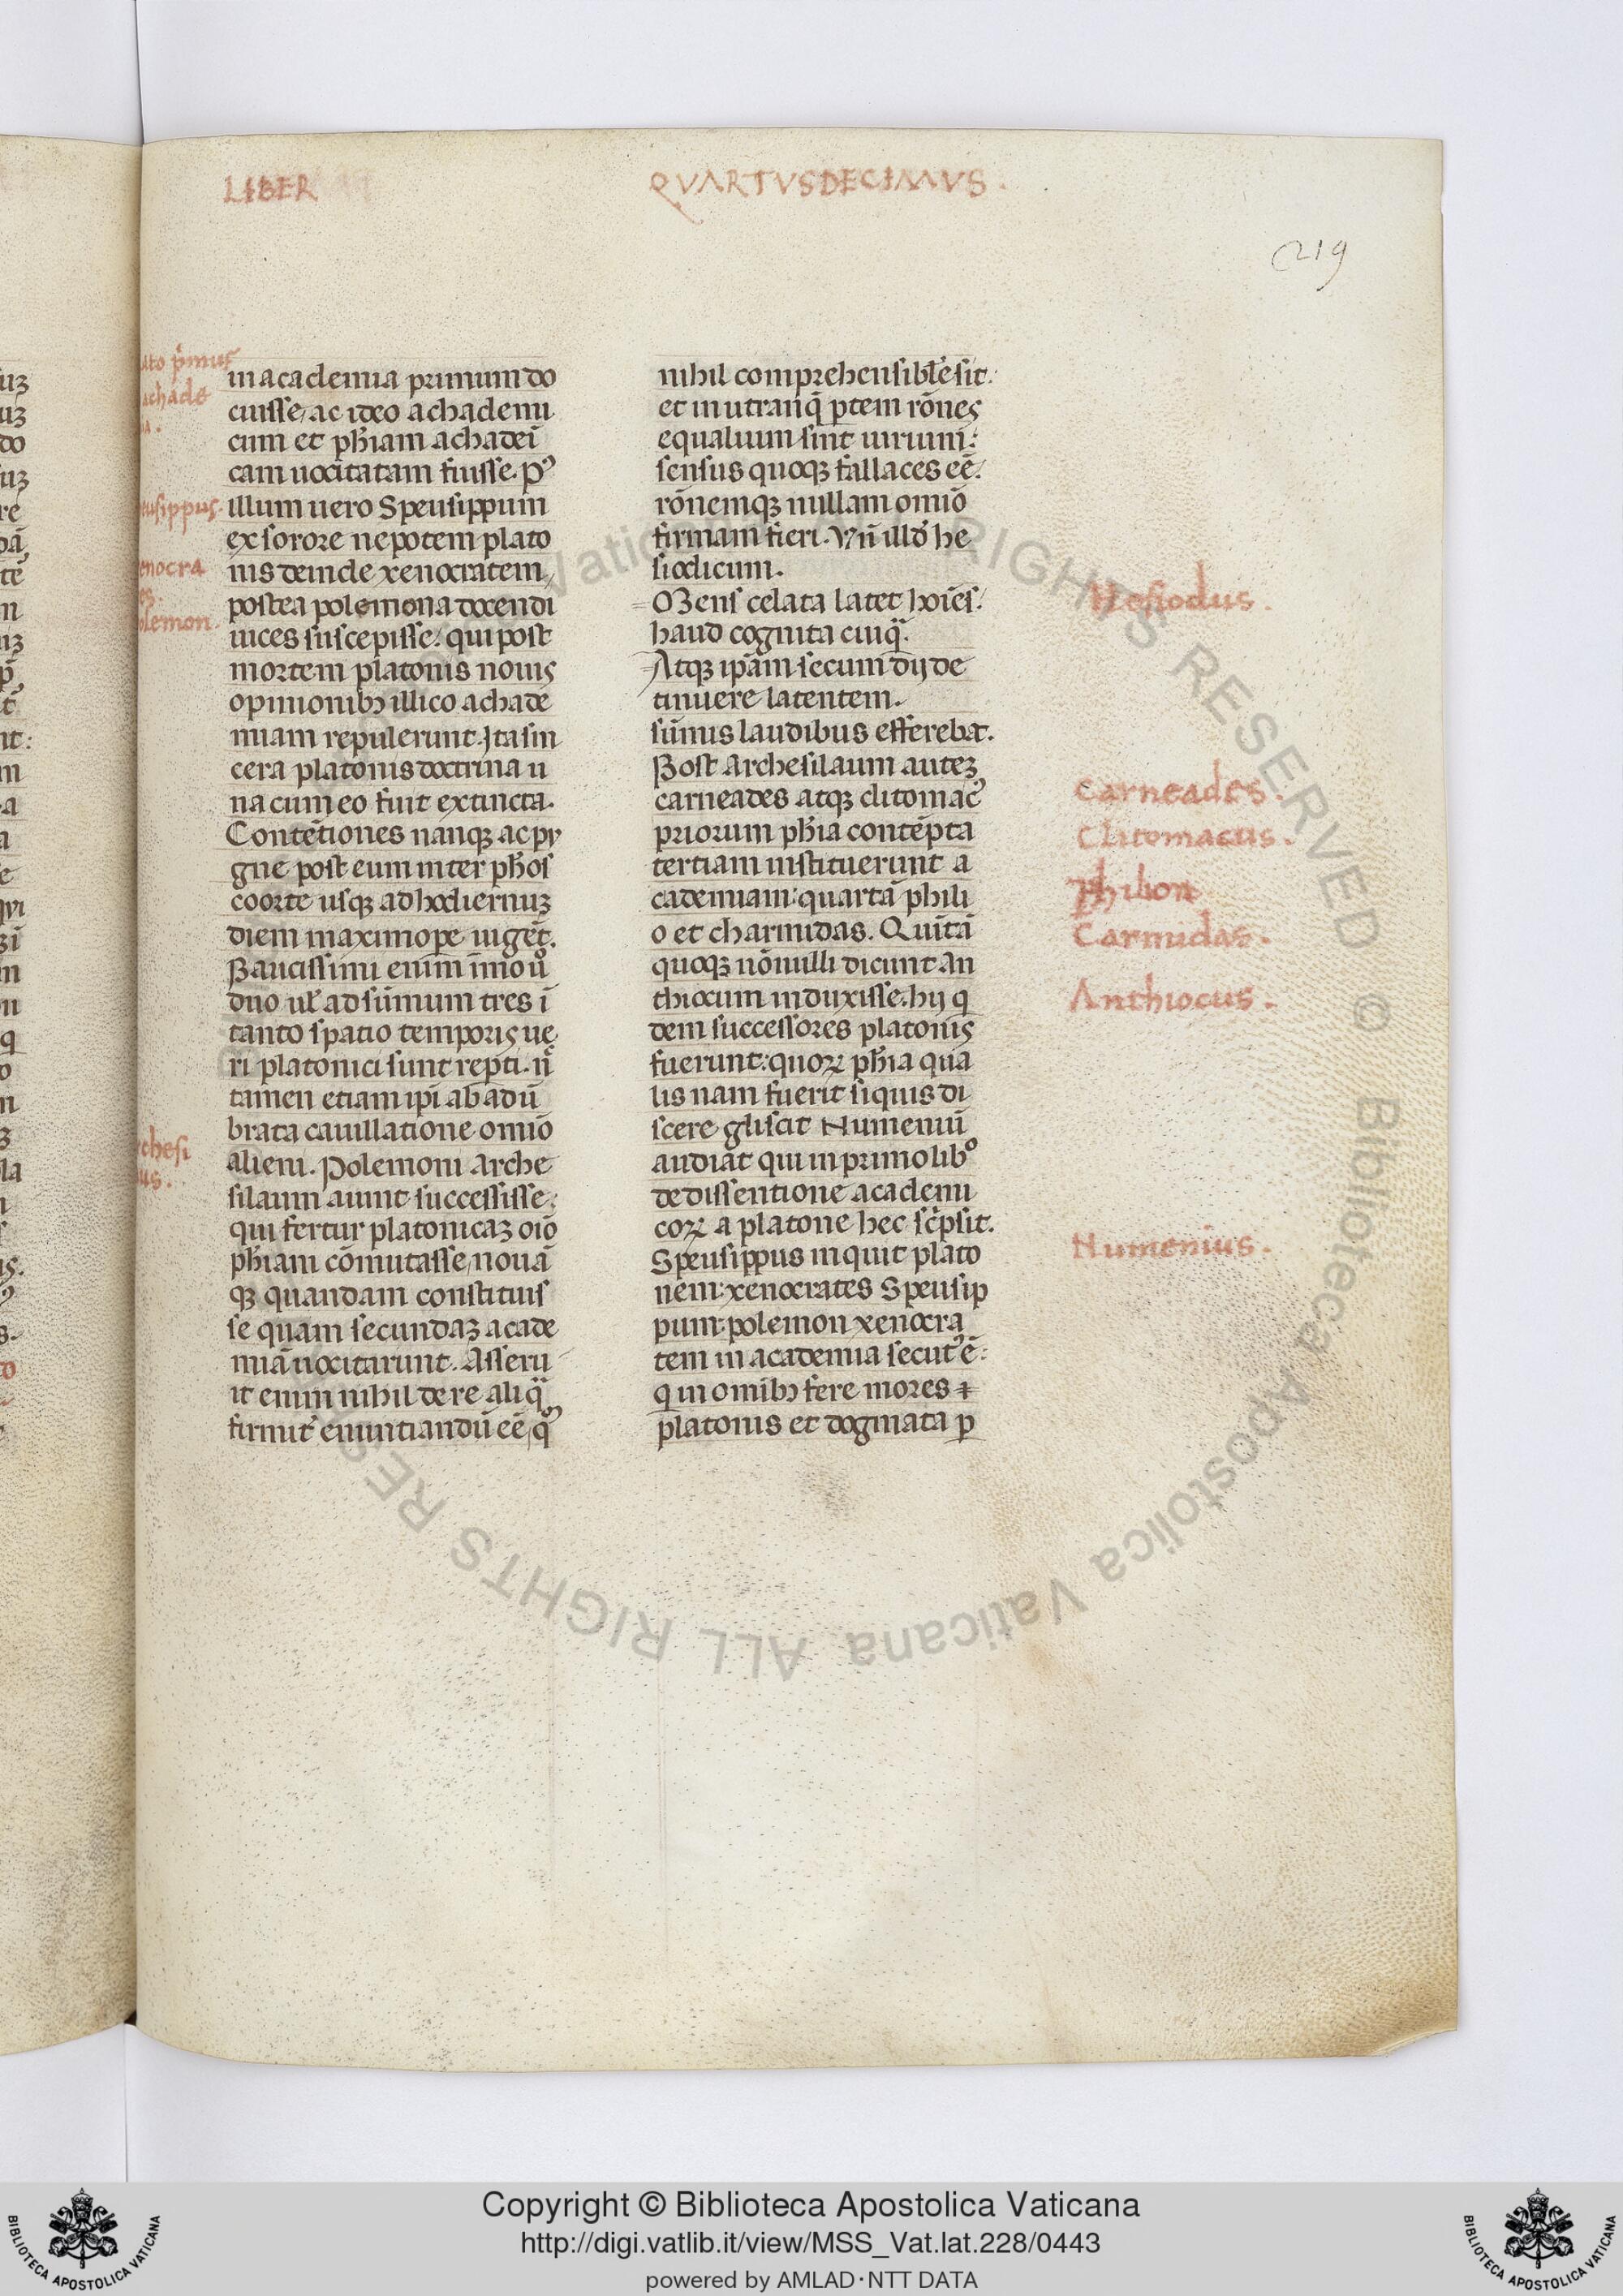 LIBER
QVARTVSDECIMVS.
219
p̄mus
achade
in academia primum do
cuisse, ac ideo achademi
cum et ph̄iam achadei
cam uocitatam fuisse. pꝰ
illum uero Speusippum
ex sorore nepotem plato
nis deinde xenocratem,
postea polemona docendi
uices suscepisse: qui post
mortem platonis nouis
opinionibꝫ illico achade
miam repulerunt. Ita sin
cera platonis doctrina u
na cum eo fuit extincta.
Contētiones nanqꝫ ac pu
gne post eum inter ph̄os
coorte usqꝫ ad hodiernuꝫ
diem maximope uigēt.
Paucissimi enim īmo uͦ
duo ul̄ ad sūmum tres ī
tanto spatio temporis ue
ri platonici sunt repti. n̄
tamen etiam ipī ab adū
brata cauillatione omīo
alieni. Polemoni Arche
silaum aiunt successisse:
qui fertur platonicaꝫ oīo
ph̄iam cōmutasse, nouā
qꝫ quandam constituis
se quam secundaꝫ acade
miā uocitarunt. Asseru
it enim nihil de re aliqͣ
firmit̄ enuntiandū eē, qꝰ
nihil comprehensibl̄e sit:
et in utranq̄ ptem rōnes
equalium sint uirium:
sensus quoqꝫ fallaces eē:
rōnemqꝫ nullam omīo
firmam fieri. Vn̄ illd̄ he
siodicum.
Mens celata latet hoīes:
haud cognita cuiqͣ.
Atqꝫ ipām secum dij de
tinuere latentem.
sūmis laudibus efferebat.
Post Archesilaum auteꝫ
carneades atqꝫ clitomacꝰ
priorum ph̄ia contēpta
tertiam instituerunt a
cademiam: quartā phili
o et charmidas. Quītā
quoqꝫ nōnulli dicunt An
thiocum induxisse. hij q
dem successores platonis
fuerunt: quoꝝ ph̄ia qua
lis nam fuerit siquis di
scere gliscit Numeniū
audiat qui in primo libͦ
de dissentione academi
coꝝ a platone hec sc̄psit.
Speusippus inquit plato
nem: xenocrates Speusip
pum: polemon xenocra
tem in academia secutꝰ ē:
q in omībꝫ fere mores ⁊
platonis et dogmata p
Hesiodus.
Carneades.
Clitomacus.
Philion
Carmidas.
Anthiocus.
Numenius.
Copyright © Biblioteca Apostolica Vaticana
http://digi.vatlib.it/view/MSS_Vat.lat.228/0443
powered by AMLAD·NTT DATA
BIBLIOTECA APOSTOLICA VATICANA
BIBLIOTECA APOSTOLICA VATICANA